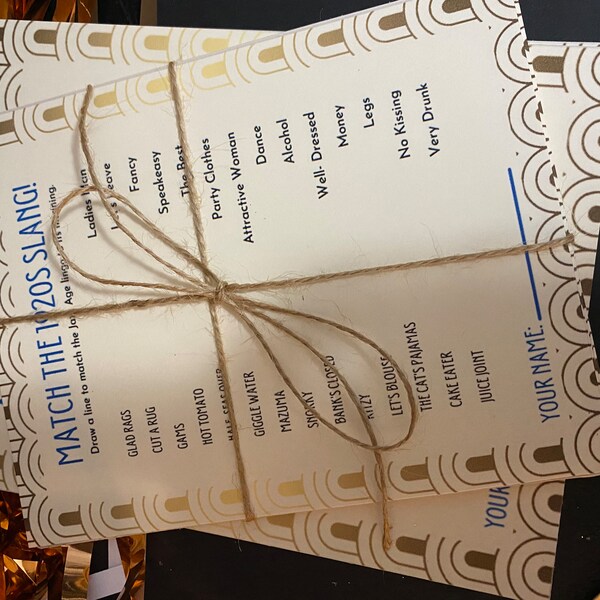 MATCH THE 1920S SLANG!
Draw a line to match the Jazz Age lingo to its meaning.
GLAD RAGS
CUT A RUG
GAMS
HOT TOMATO
HALF SEAS OVER
GIGGLE WATER
MAZUMA
SNORKY
BANK'S CLOSED
RITZY
LET'S BLOUSE
THE CAT'S PAJAMAS
CAKE EATER
JUICE JOINT
Ladies Man
Let's Leave
Fancy
Speakeasy
The Best
Party Clothes
Attractive Woman
Dance
Alcohol
Well- Dressed
Money
Legs
No Kissing
Very Drunk
YOUR NAME:
YOUR